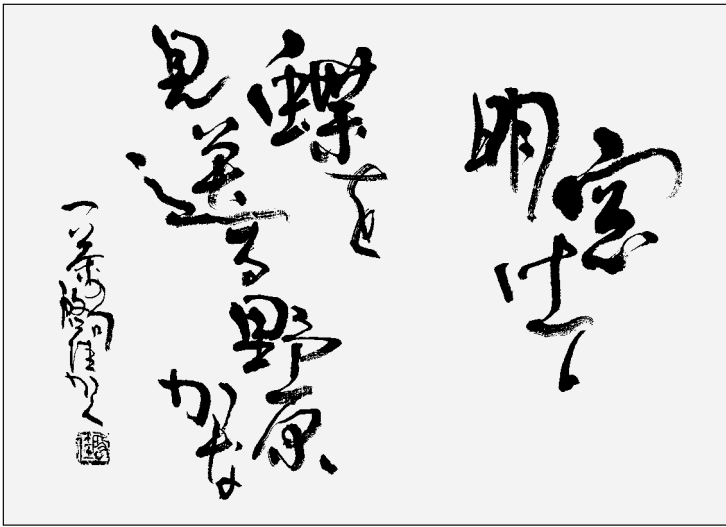 窓
明けて
蝶を
見送る
野原
かな
一茶の句 佳かく